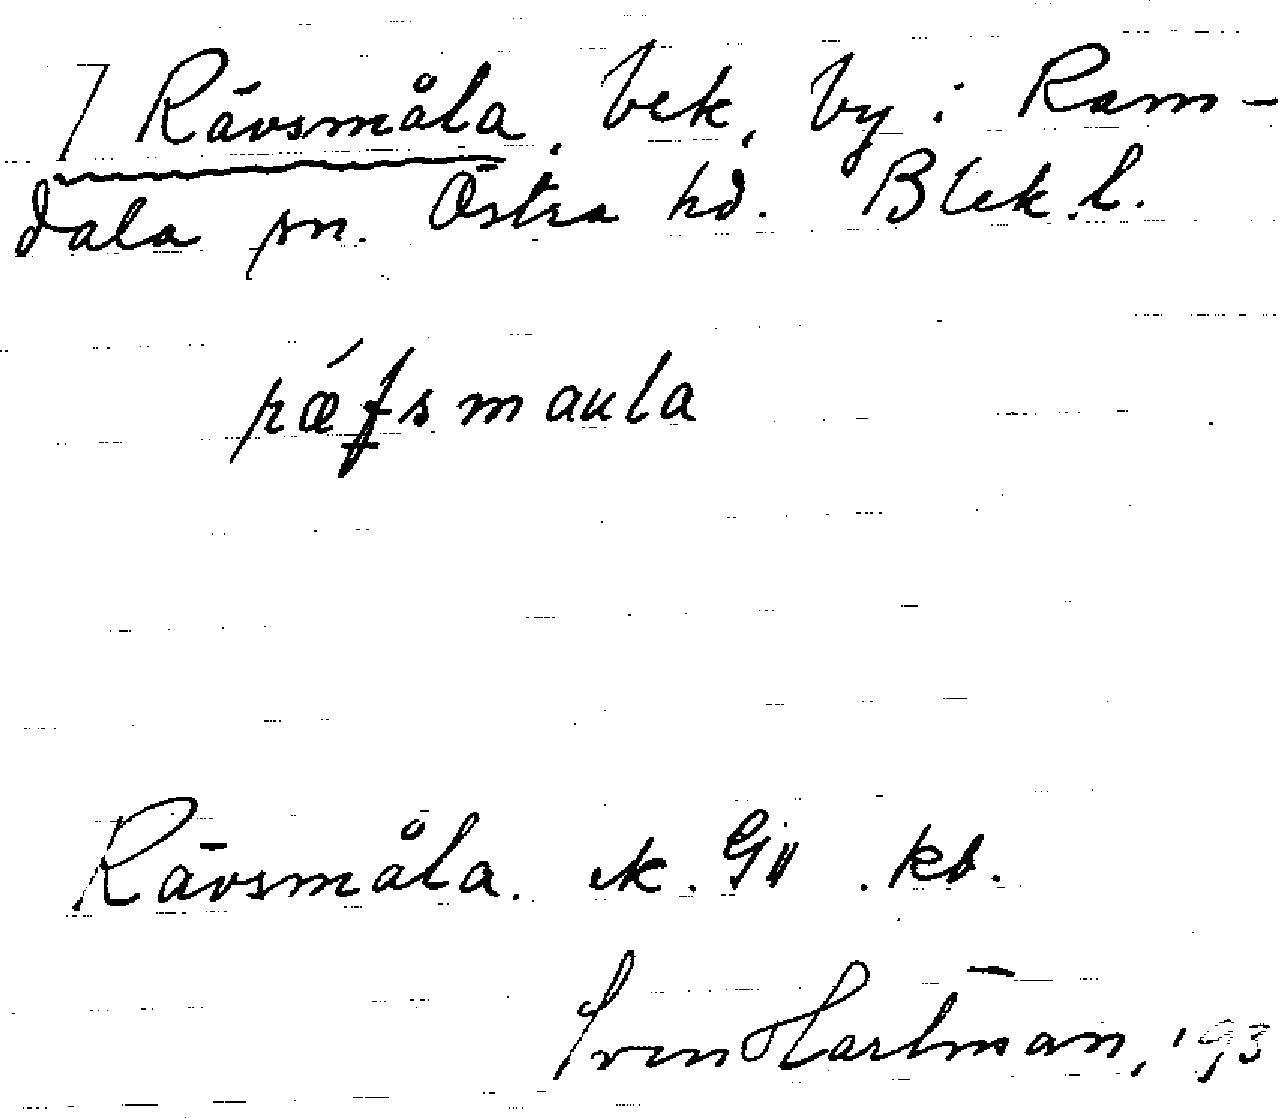 Rävsmåla, bek, by i Ram-
dala sn. Östra hd. Blek.l.
rǽfsmaula
Rävsmåla. ek. GII. kb.
Sven Hartman, 193